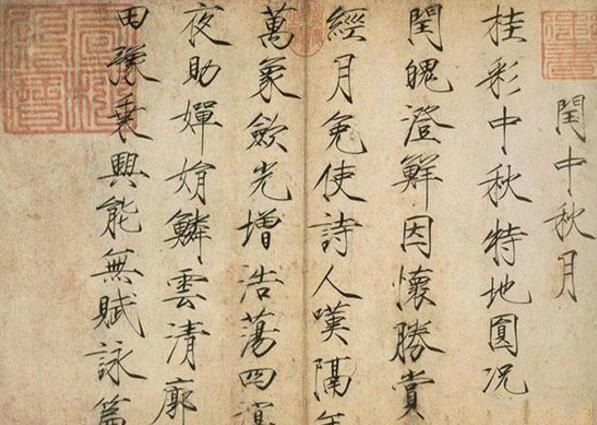 閏中秋月
桂彩中秋特地圓况
閏魄澄鮮因懷勝賞
經月免使詩人嘆隔年
萬象歛光增浩蕩四溟
夜助嬋娟鱗雲清廓
田豫乘興能無賦詠篇